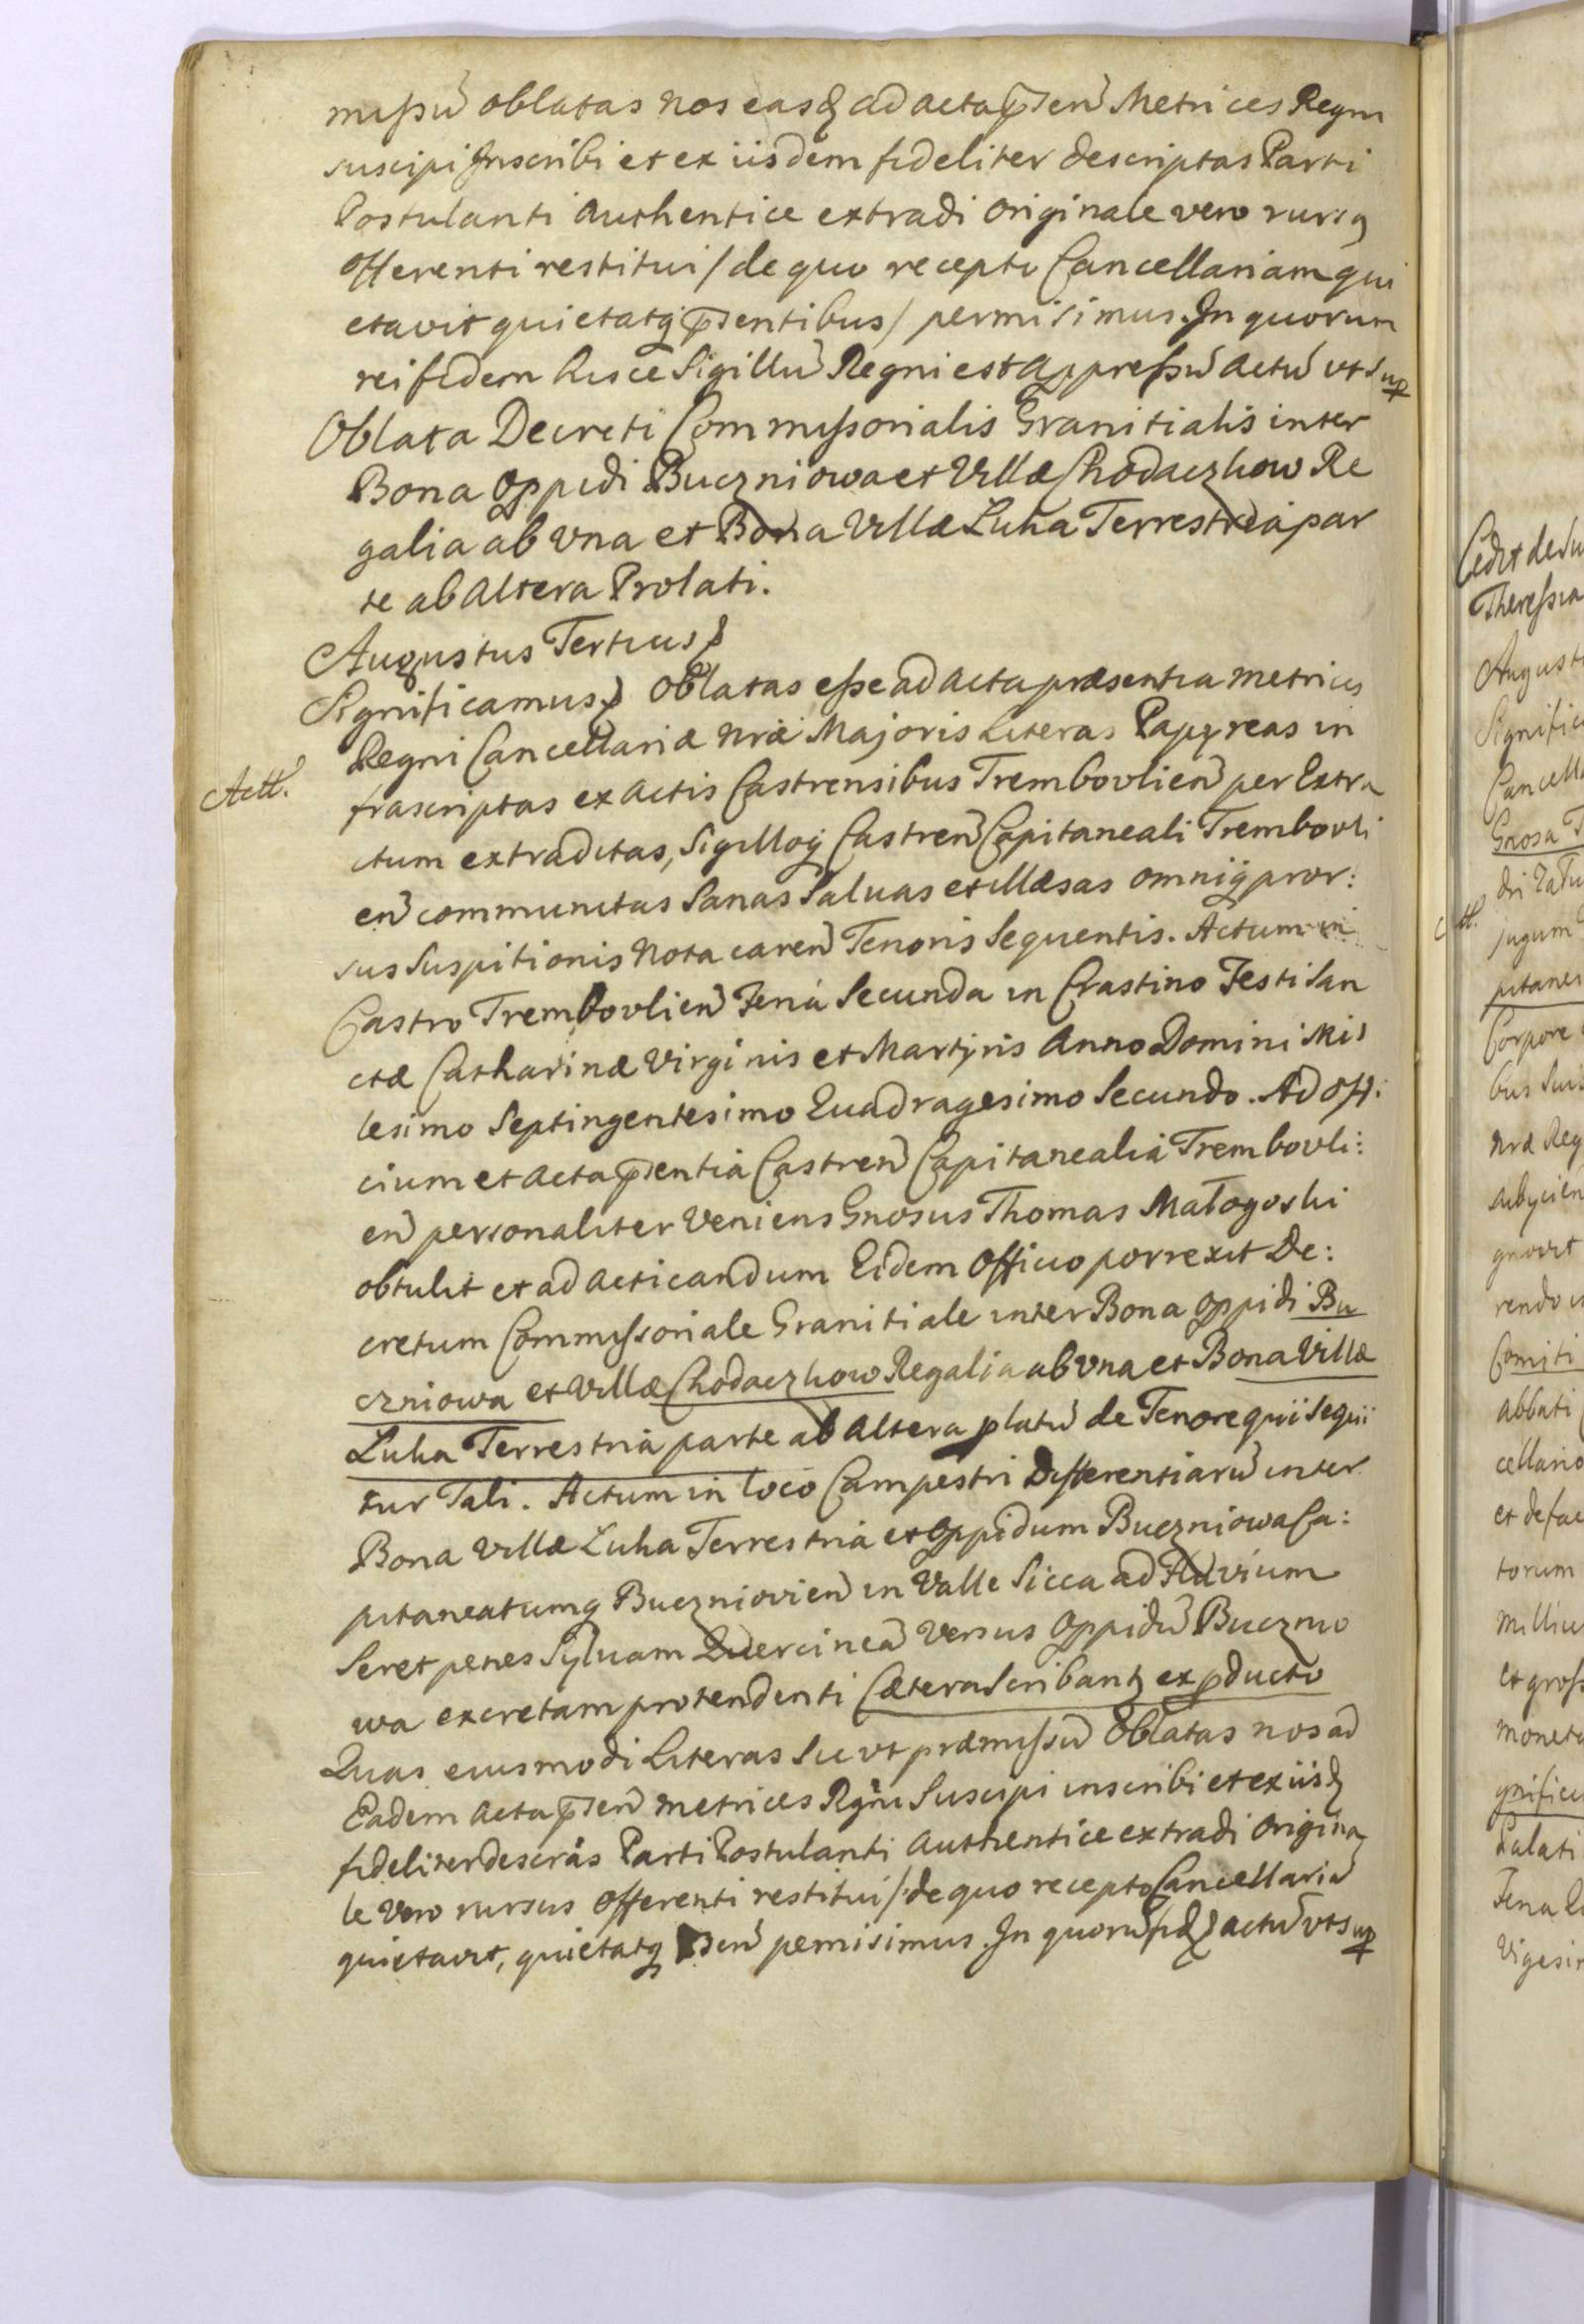 missũ oblatas nos easq ad acta p̄sen̄ Metrices Regni
suscipi Inscribi et ex iisdem fideliter descriptas Parti
Postulanti Authentice extradi originale vero rursq
offerenti restitui / de quo recepto Cancellariam qui
etavit quietatq p̄sentibus / permisimus. In quorum
rei fidem hisce Sigillũ Regni est appressũ actũ ut sup
Oblata Decreti Commissorialis Granitialis inter
Bona Oppidi Buczniowa et Villæ Chodaczkow Re
galia ab una et Bona Villæ Luka Terrestria par
te ab Altera Prolati.
Augustus Tertius
Significamus Oblatas esse ad acta præsentia metrices
Regni Cancellariæ nræ Majoris Literas Papyreas in
Actt.
frascriptas ex actis Castrensibus Trembovlien̄ per Extra
ctum extraditas, Sigilloq Castren̄ Capitaneali Trembovli
en̄ communitas Sanas Saluas et illæsas omniq pror:
sus Suspitionis nota caren̄ Tenoris Sequentis. Actum in
Castro Trembovlien̄ Feria Secunda in Crastino Festi San
ctæ Catharinæ Virginis et Martyris Anno Domini Mil
lesimo Septingentesimo Quadragesimo Secundo. Ad offi:
cium et acta p̄sentia Castren̄ Capitanealia Trembovli:
en̄ personaliter Veniens Gnosus Thomas Małogoski
obtulit et ad acticandum Eidem Officio porrexit De:
cretum Commissoriale Granitiale inter Bona Oppidi Bu
czniowa et Villæ Chodaczkow Regalia ab una et Bona Villæ
Luka Terrestria parte ab Altera platũ de Tenore qui sequi
tur Tali. Actum in loco Campestri Differentiarũ inter
Bona Villæ Luka Terrestria et Oppidum Buczniowa Ca:
pitaneatumq Buczniovien̄ in Valle Sicca ad Fluvium
Seret penes Sylvam Quercineã versus Oppidũ Bucznio
wa excretam protendenti Cætera Scribantq ex pducto
Quas eiusmodi Literas Sic ut præmissũ Oblatas nos ad
Eadem Acta p̄sen̄ metrices Rgni Suscipi inscribi et ex iisd
fideliter descrãs Parti Postulanti Authentice extradi Origina
le Vero rursus offerenti restitui / de quo recepto Cancellariã
quietavit, quietatq p̄sen̄ pemisimus. In quorũ fid actũ ut sup